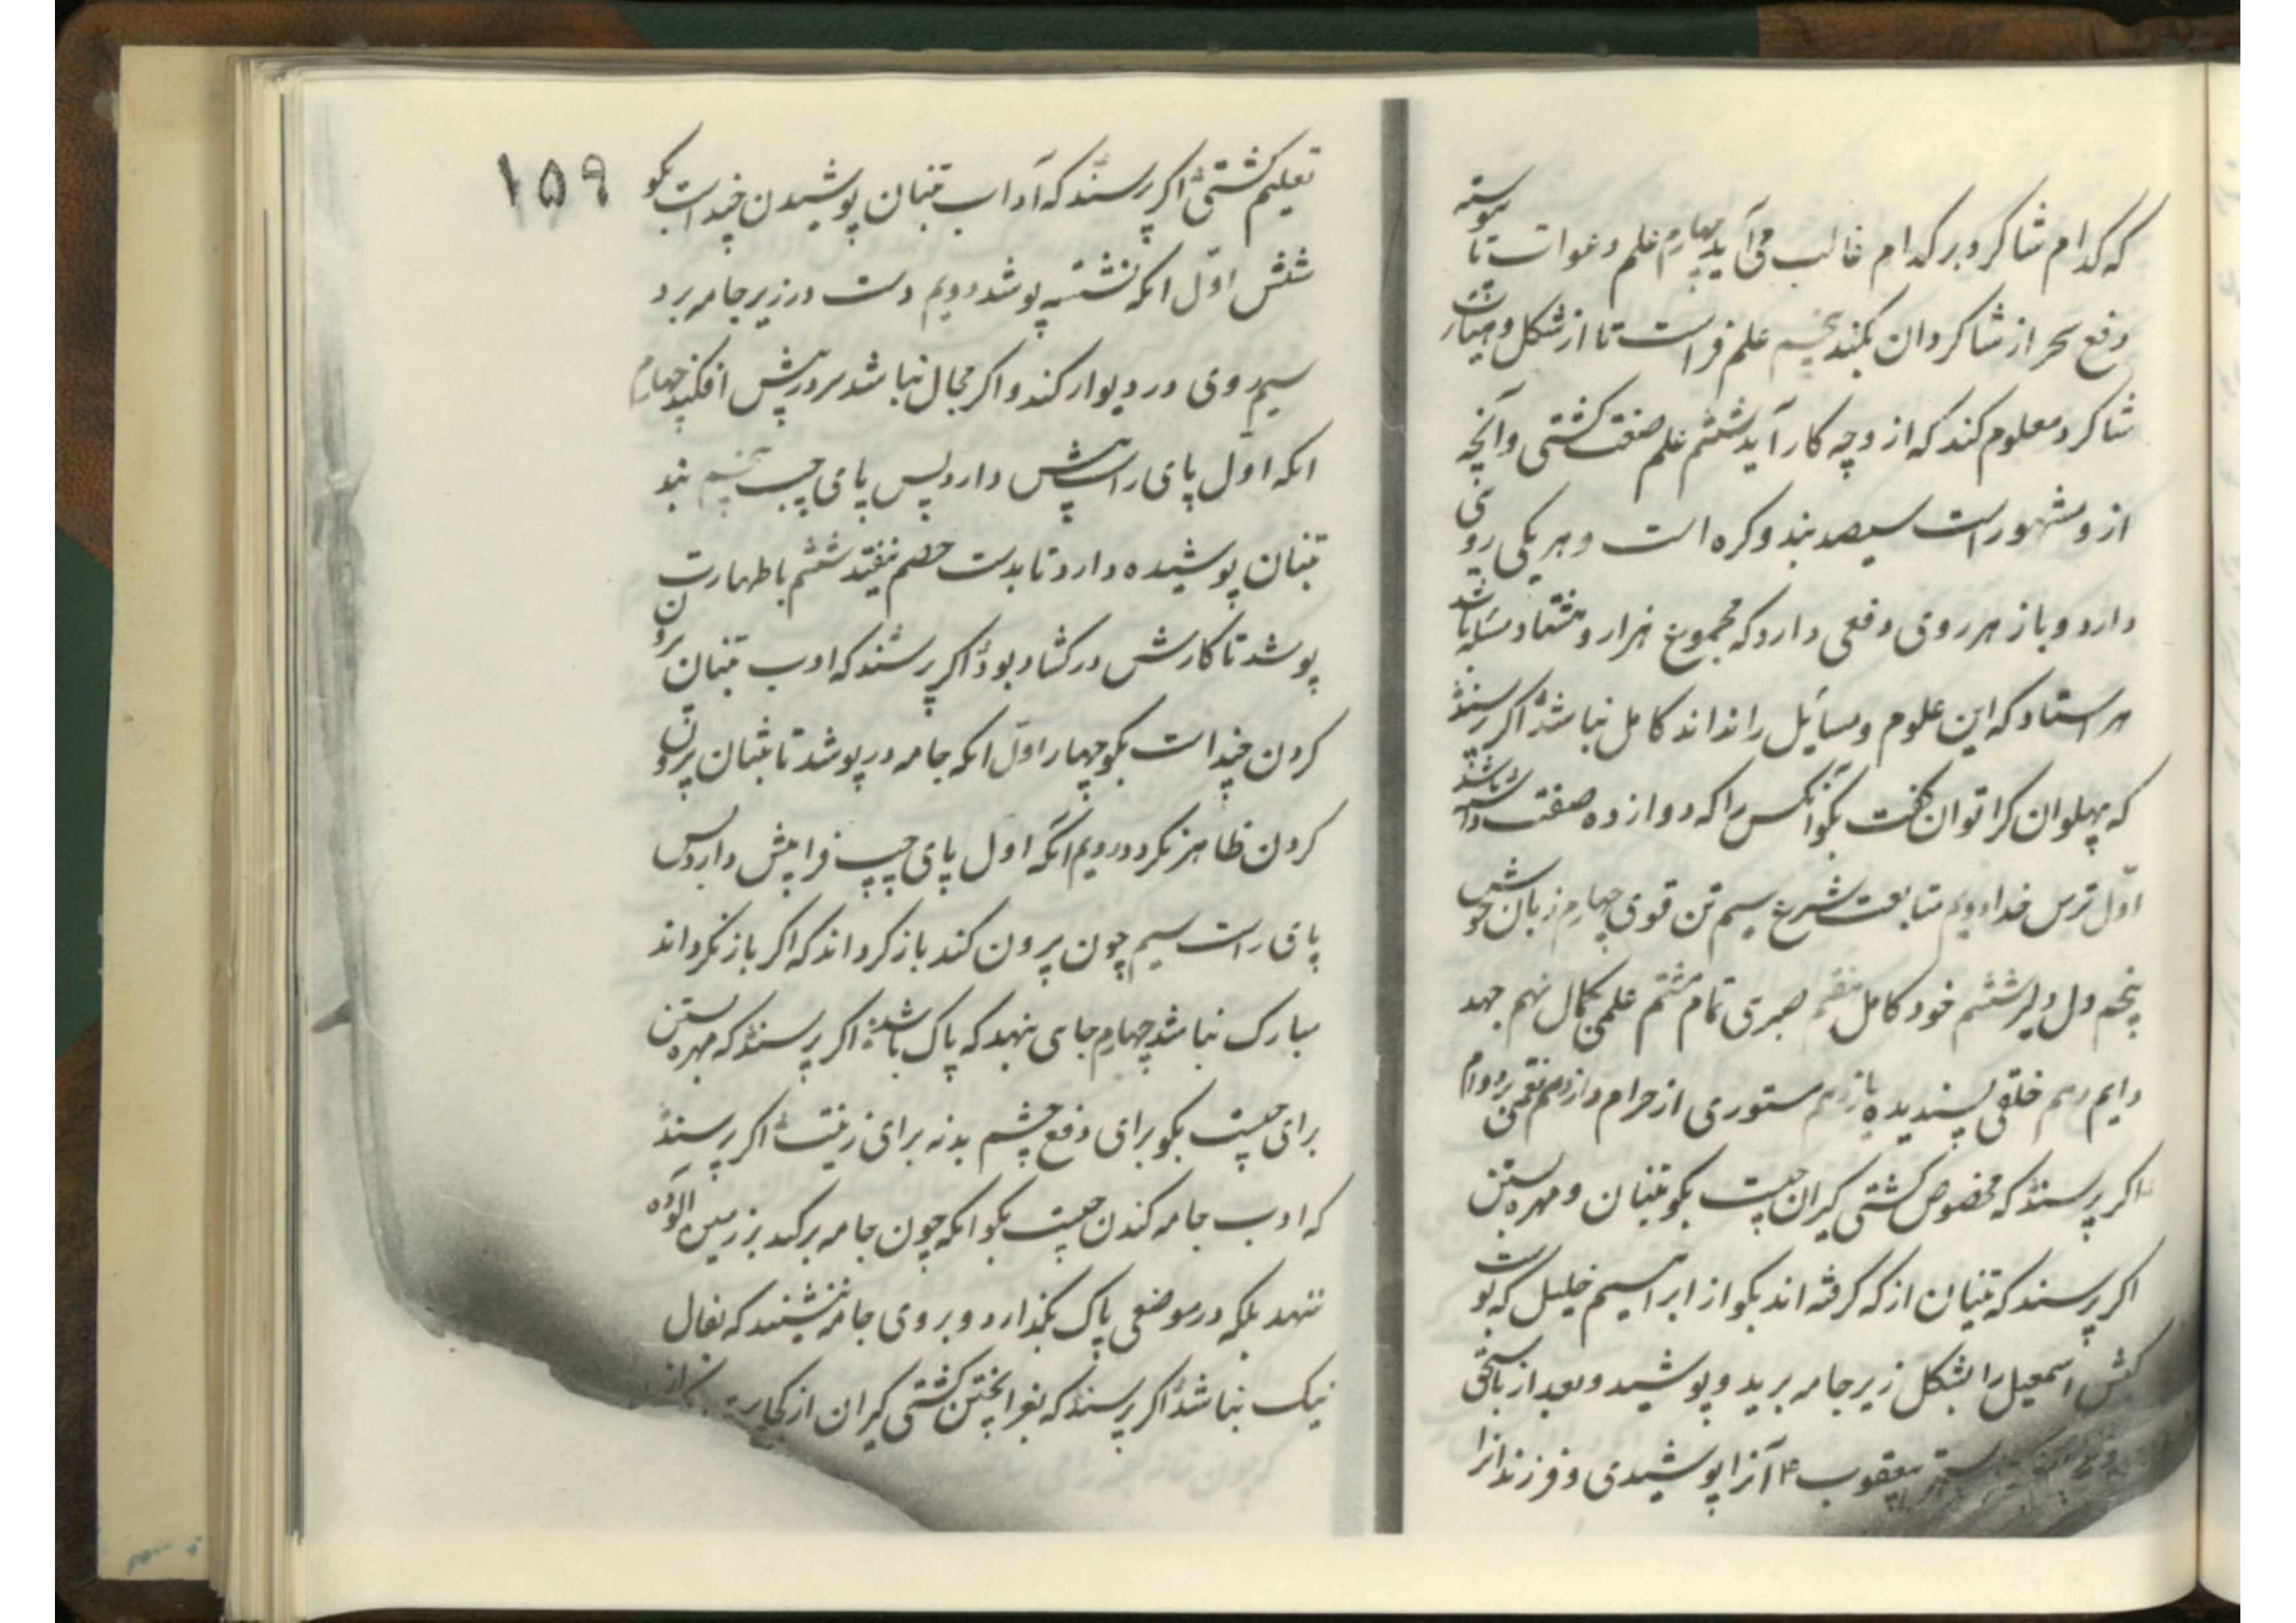 که کدام شاکرد بر کدام غالب می آید چهارم علم دعوات تا پیوسته
دفع سحر از شاکردان بکند پنجم علم فراست تا از شکل و هیئات
شاکرد معلوم کند که از و چه کار آید ششم علم صنعت کشتی و آنچه
ازو مشهور است سیصد بند و کره است و هر یکی روی
دارد و باز هر روی دفعی دارد که مجموع هزار و هشتاد مسئله باشد
هر استاد که این علوم و مسائل را نداند کامل نباشد اکر پرسند
که پهلوان کرا توان کفت بکو آنکس را که دوازده صفت داشته باشد
اول ترس خدا دویم متابعت شرع سیم تن قوی چهارم زبان خوش
پنجم دل دلیر ششم خرد کامل هفتم صبری تمام هشتم علمی بکمال نهم جهد
دایم دهم خلقی پسندیده یازدهم ستوری از حرام دوازدهم
اکر پرسند که مخصوص کشتی کیران چیست بکو تنبان و مهره بستن
اکر پرسند که تنبان از که کرفته اند بکو از ابراهیم خلیل که پوست
کبش اسمعیل را بشکل زیر جامه برید و پوشید و بعد از باسحق
یعقوب ع آنرا پوشیدی و فرزندانرا
۱۵۹
تعلیم کشتی اکر پرسند که آداب تنبان پوشیدن چند است بکو
شش اول انکه نشسته پوشد دویم دست در زیر جامه برد
سیم روی در دیوار کند و اکر مجال نباشد سر در پیش افکند چهارم
انکه اول پای راست پیش دارد پس پای چپ پنجم بند
تنبان پوشیده دارد تا بدست خصم نیفتد ششم با طهارت
پوشد تا کارش در کشاد بود اکر پرسند که ادب تنبان برون
کردن چند است بکو چهار اول انکه جامه در پوشد تا تنبان برون
کردن ظاهر نکردد دویم انکه اول پای چپ فرا پیش دارد پس
پای راست سیم چون برون کند باز کرداند که اکر باز نکرداند
مبارک نباشد چهارم جای نهد که پاک باشد اکر پرسند که مهره بستن
برای چیست بکو برای دفع چشم بد نه برای زینت اکر پرسند
که ادب جامه کندن چیست بکو انکه چون جامه برکند بر زمین آلوده
ننهد بلکه در موضعی پاک بکذارد و بر روی جامه ننشیند که بفال
نیک نباشد اکر پرسند که کشتی کیران از کجاست